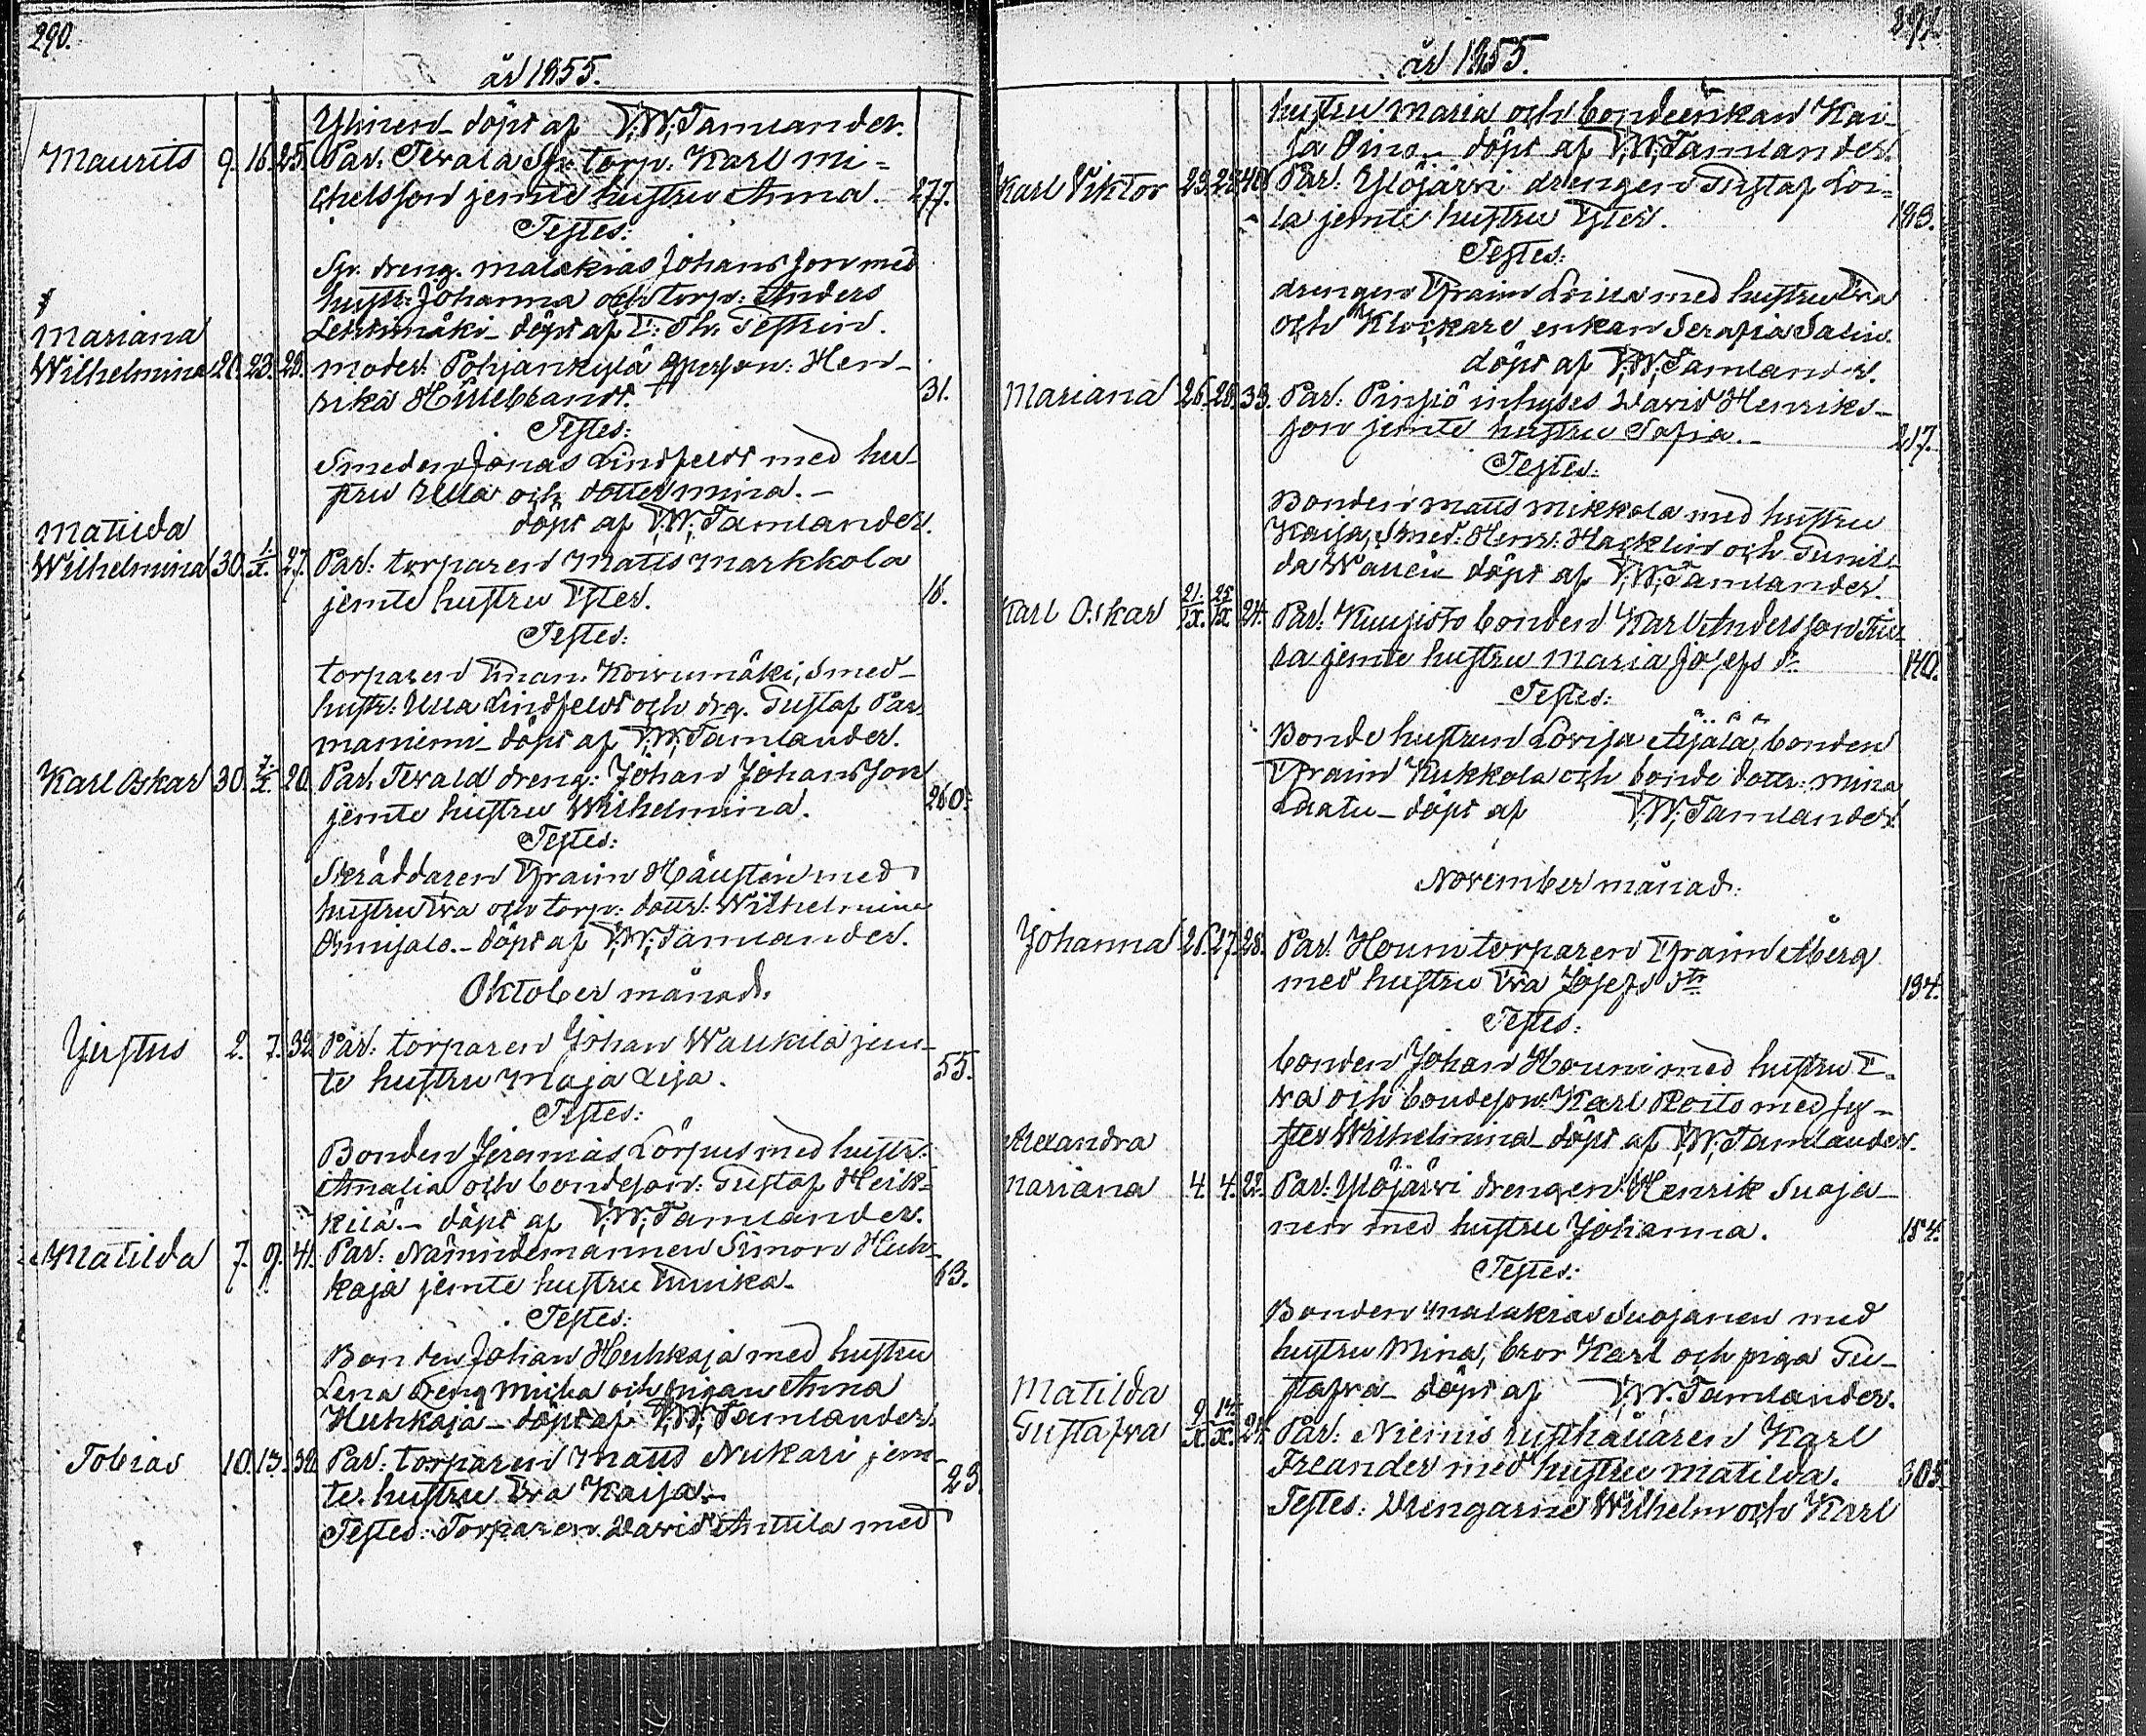 290.
år 1855.
Ylinen döpt af V.W. Tamlander.
Maurits 9. 16. 25. Par. Tevala Sjr. torp. Karl Mi-
chelsson jemte hustru Anna. 277.
Testes:
Sjr. dreng. Malakias Johansson med
hustr. Johanna och torp. Anders
döpt af
Mariana
Wilhelmina 20. 23. 23. moder: Pohjankylä qperson: Hen-
rika Hillebrandt. 31.
Testes:
Smeden Jonas Lindfeldt med hu-
stru Ulla och dotter Mina.-
döpt af V.W. Tamlander.
Matilda
Wilhelmina 30. 1. X. 27. Par: torparen Matts Markkola
jemte hustru Ester. 18.
Testes:
torparen Eman. Koivumäki, Smed-
hustr: Ulla Lindfeldt och drg. Gustaf Par-
maniemi döpt af V.W. Tamlander.
Karl Oskar 30. 7. X. 20. Par. Tevala dreng: Johan Johansson
jemte hustru Wilhelmina. 260.
Testes:
Skräddaren Efraim Hausten med
hustru Eva och torp: dottr: Wilhelmina
döpt af V.W. Tamlander.
Oktober månad.
Justus 2. 7. 32. Par: torparen Johan Waukila jem-
te hustru Maja Lisa. 55.
Testes:
Bonden Jeremias Lörpus med hustr:
Amalia och bondeson: Gustaf Heik-
kilä.- döpt af V.W. Tamlander.
Matilda 7. 9. 41. Par: Nämndemannen Simon Huh-
kaja jemte hustru Ennika. 63.
Testes:
Bonden Johan Huhkaja med hustru
Lena dreng Micka och pigan Anna
Huhkaja döpt af V.W. Tamlander.
Tobias 10. 13. 32. Par: torparen Matts Nukari jem-
te hustru Eva Kaija. 23.
Testes: Torparen David Anttila med
291.
år 1855.
hustru Maria och bondeenkan Kai-
sa döpt af V.W. Tamlander.
Karl Viktor 23. 28. 40. Par: Ylöjärvi drengen Gustaf Loi-
la jemte hustru Ester. 193.
Testes:
drengen Efraim Loilla med hustru Eva
och Klockare enkan Serafia Salin.
döpt af V.W. Tamlander.
Mariana 26. 28. 33. Par: Pinsiö inhyses David Henriks-
son jemte hustru Sofia. 217.
Testes:
Bonden Matts Mikkola med hustru
Kaisa, Smed: Henr: Hacklin och Gunil-
da döpt af V.W. Tamlander.
Karl Oskar 21. IX. 25 IX 24. Par: Kuusisto bonden Karl Andersson Tuu-
ra jemte hustru Maria Josefs dr. 140.
Testes:
Bonde hustrun Lovisa Äijälä, bonden
Efraim Kukkola och bonde dottr: Mina
Laatu döpt af V.W. Tamlander.
November månad.
Johanna 26. 27. 28. Par: Houni torparen Efraim Åberg
med hustru Eva Josefs dtr 134.
Testes:
bonden Johan Houni med hustru E-
va och bondeson: Karl Roito med sy-
ster Wilhelmina döpt af V.W. Tamlander.
Alexandra
Mariana 4. 4. 22. Par: Ylöjärvi drengen Henrik Suoja-
nen med hustru Johanna. 184.
Testes:
Bonden Malakias Suojanen med
hustru Mina, bror Karl och piga Gu-
stafva döpt af V.W. Tamlander.
Matilda
Gustafva 9 X. 14. X. 24. Par: Niemis rusthållaren Karl
Freander med hustru Matilda. 305.
Testes: Drengarne Wilhelm och Karl